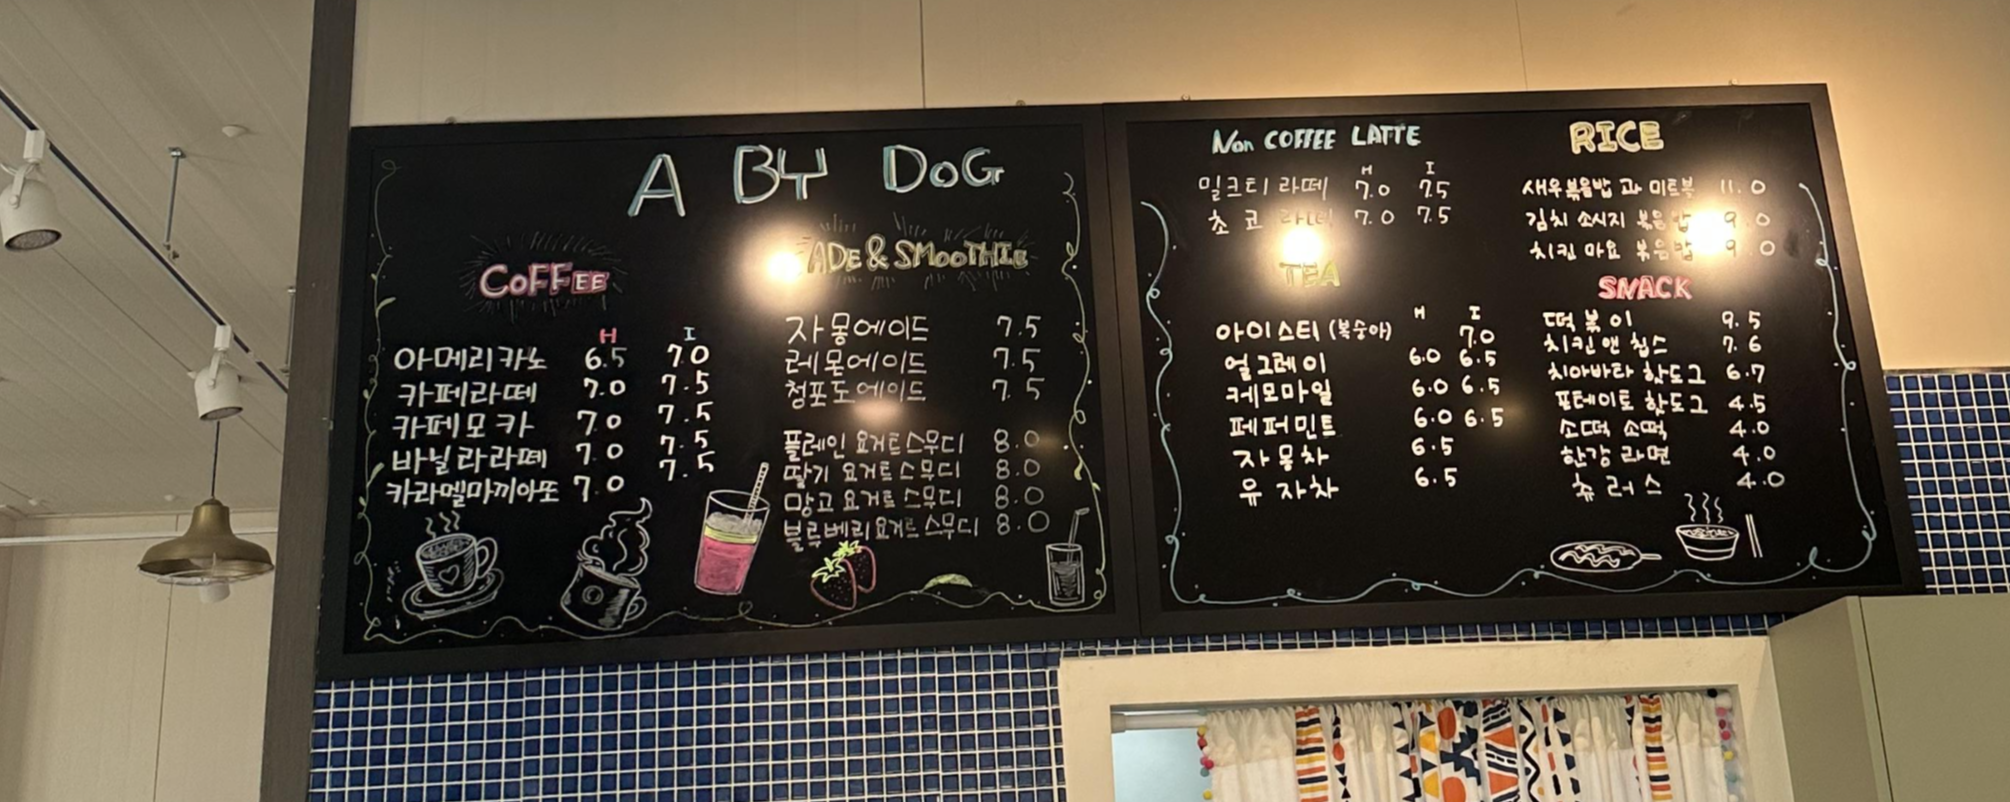 A BY DOG
COFFEE
H I
아메리카노 6.5 7.0
카페라떼 7.0 7.5
카페모카 7.0 7.5
바닐라라떼 7.0 7.5
카라멜마끼아또 7.0 7.5
ADE & SMOOTHIE
자몽에이드 7.5
레몬에이드 7.5
청포도에이드 7.5
플레인 요거트스무디 8.0
딸기 요거트스무디 8.0
망고 요거트스무디 8.0
블루베리요거트스무디 8.0
Non COFFEE LATTE
H I
밀크티 라떼 7.0 7.5
초코 라떼 7.0 7.5
TEA
H I
아이스티 (복숭아) 7.0
얼그레이 6.0 6.5
케모마일 6.0 6.5
페퍼민트 6.0 6.5
자몽차 6.5
유자차 6.5
RICE
새우볶음밥 과 미트볼 11.0
김치 소시지 볶음밥 9.0
치킨 마요 볶음밥 9.0
SNACK
떡볶이 9.5
치킨앤 칩스 7.6
치아바타 핫도그 6.7
포테이토 핫도그 4.5
소떡 소떡 4.0
한강 라면 4.0
츄러스 4.0